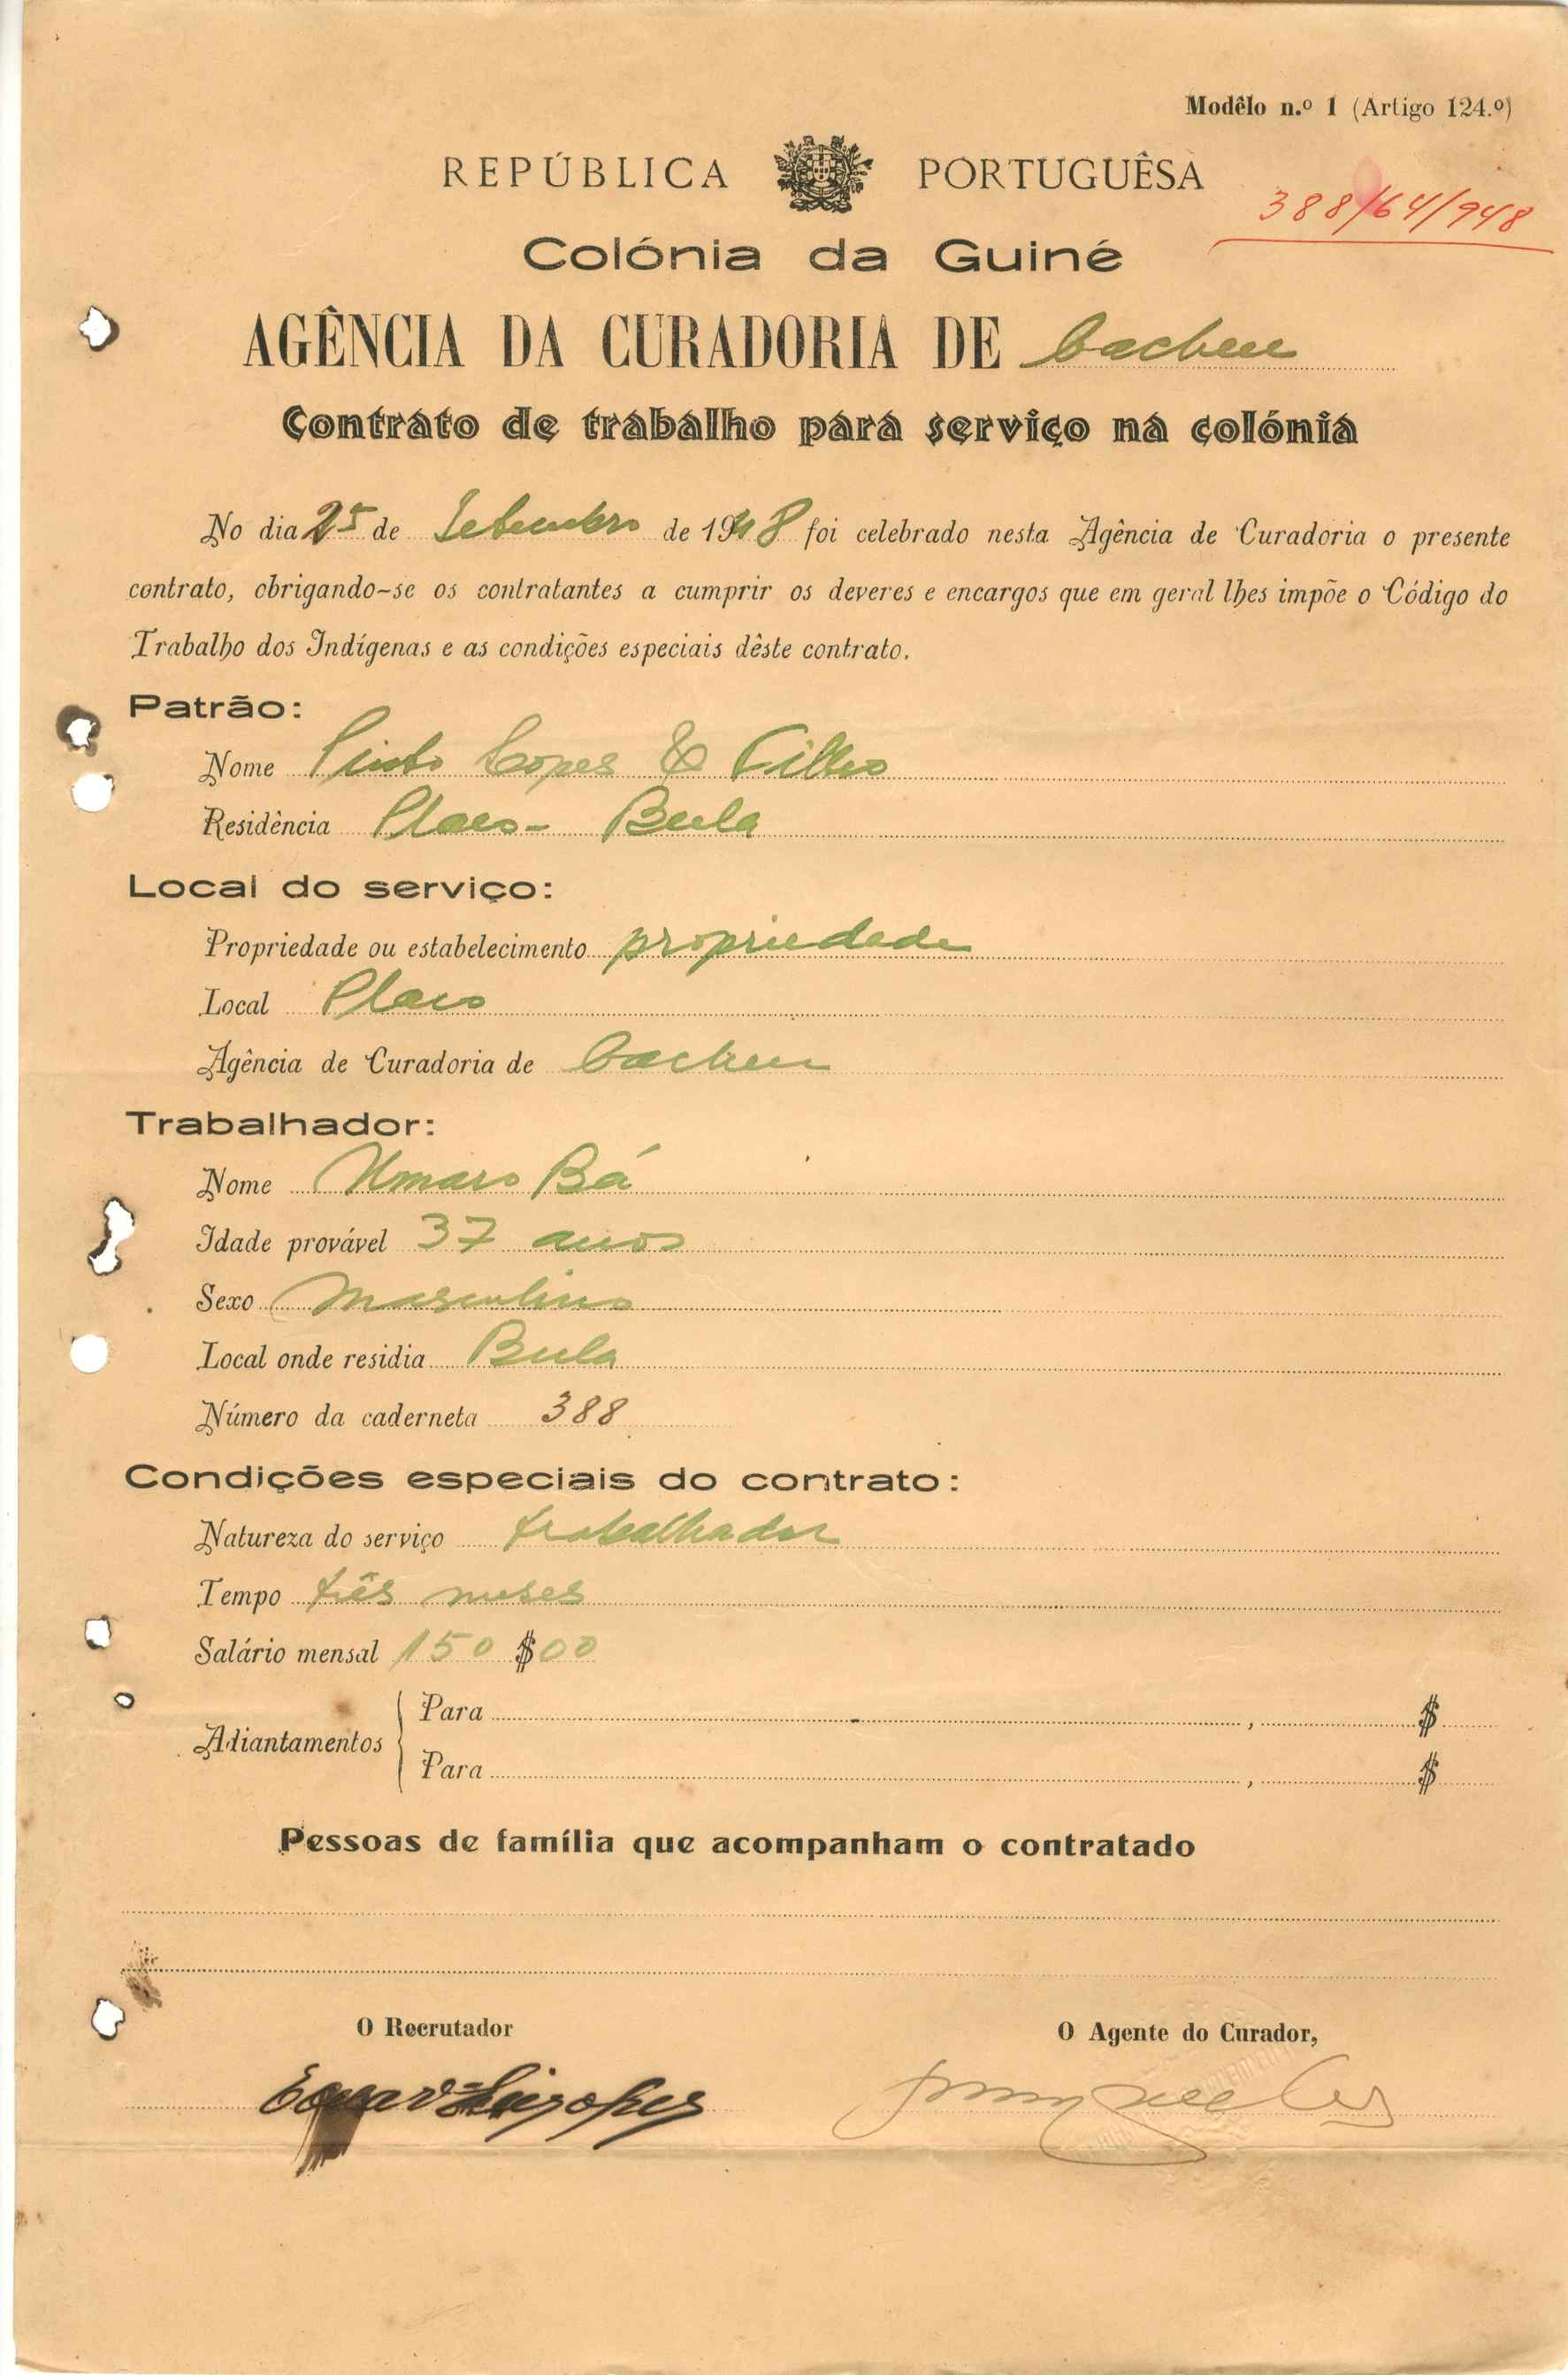 Modêlo n.º 1 (Artigo 124.º)
REPÚBLICA PORTUGUÊSA
388/64/948
Colónia da Guiné
AGÊNCIA DA CURADORIA DE Cacheu
Contrato de trabalho para serviço na colónia
No dia 25 de Setembro de 1948 foi celebrado nesta Agência de Curadoria o presente
contrato, obrigando-se os contratantes a cumprir os deveres e encargos que em geral lhes impõe o Código do
Trabalho dos Indígenas e as condições especiais dêste contrato.
Patrão:
Nome Pinto Lopes & Filho
Residência Placo- Bula
Local do serviço:
Propriedade ou estabelecimento propriedade
Local Placo
Agência de Curadoria de Cacheu
Trabalhador:
Nome Umaro Bá
Idade provável 37 anos
Sexo Masculino
Local onde residia Bula
Número da caderneta 388
Condições especiais do contrato:
Natureza do serviço trabalhador
Tempo três meses
Salário mensal 150$00
Adiantamentos
Para , $
Para , $
Pessoas de família que acompanham o contratado
O Recrutador
O Agente do Curador,